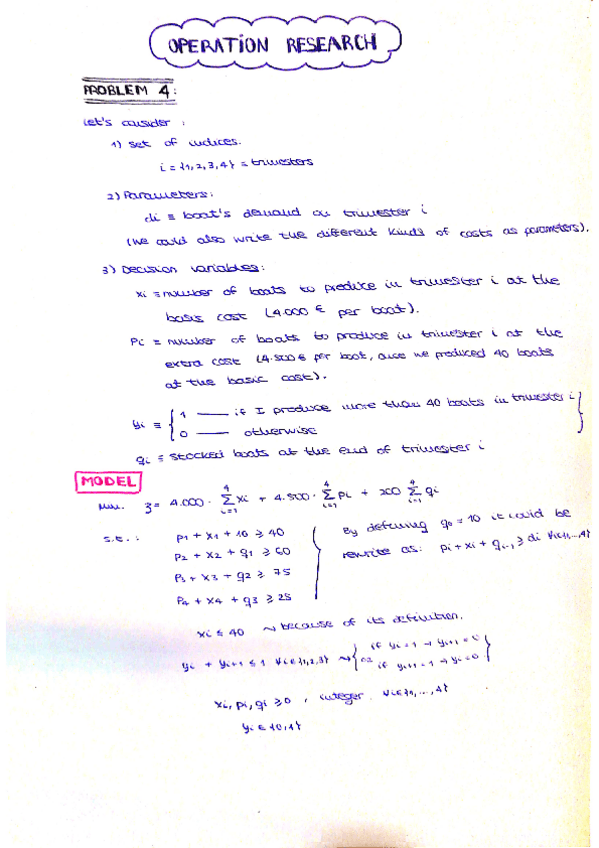 OPERATION RESEARCH
PROBLEM 4:
Let's consider :
1) set of indices.
i = {1,2,3,4} = trimesters
2) Parameters:
di ≡ boat's demand on trimester i
(we could also write the different kinds of costs as parameters).
3) Decision variables:
xi ≡ number of boats to produce in trimester i at the
basis cost (4.000 € per boat).
Pi ≡ number of boats to produce in trimester i at the
extra cost (4.500 € per boat, once we produced 40 boats
at the basic cost).
yi ≡ { 1 — if I produce more than 40 boats in trimester i
0 — otherwise }
qi ≡ stocked boats at the end of trimester i
MODEL
Min. z = 4.000 · Σ_{i=1}^{4} xi + 4.500 · Σ_{i=1}^{4} pi + 200 Σ_{i=1}^{4} qi
s.t. :
P1 + x1 + 10 ≥ 40
P2 + x2 + q1 ≥ 60
P3 + x3 + q2 ≥ 75
P4 + x4 + q3 ≥ 25
By defining q0 = 10 it could be
rewrite as: pi + xi + qi-1 ≥ di ∀i∈{1,...,4}
xi ≤ 40 ~ because of its definition.
yi + yi+1 ≤ 1 ∀i∈{1,2,3} ~ { if yi = 1 → yi+1 = 0
or if yi+1 = 1 → yi = 0 }
xi, pi, qi ≥ 0 , integer ∀i∈{1,...,4}
yi ∈ {0,1}